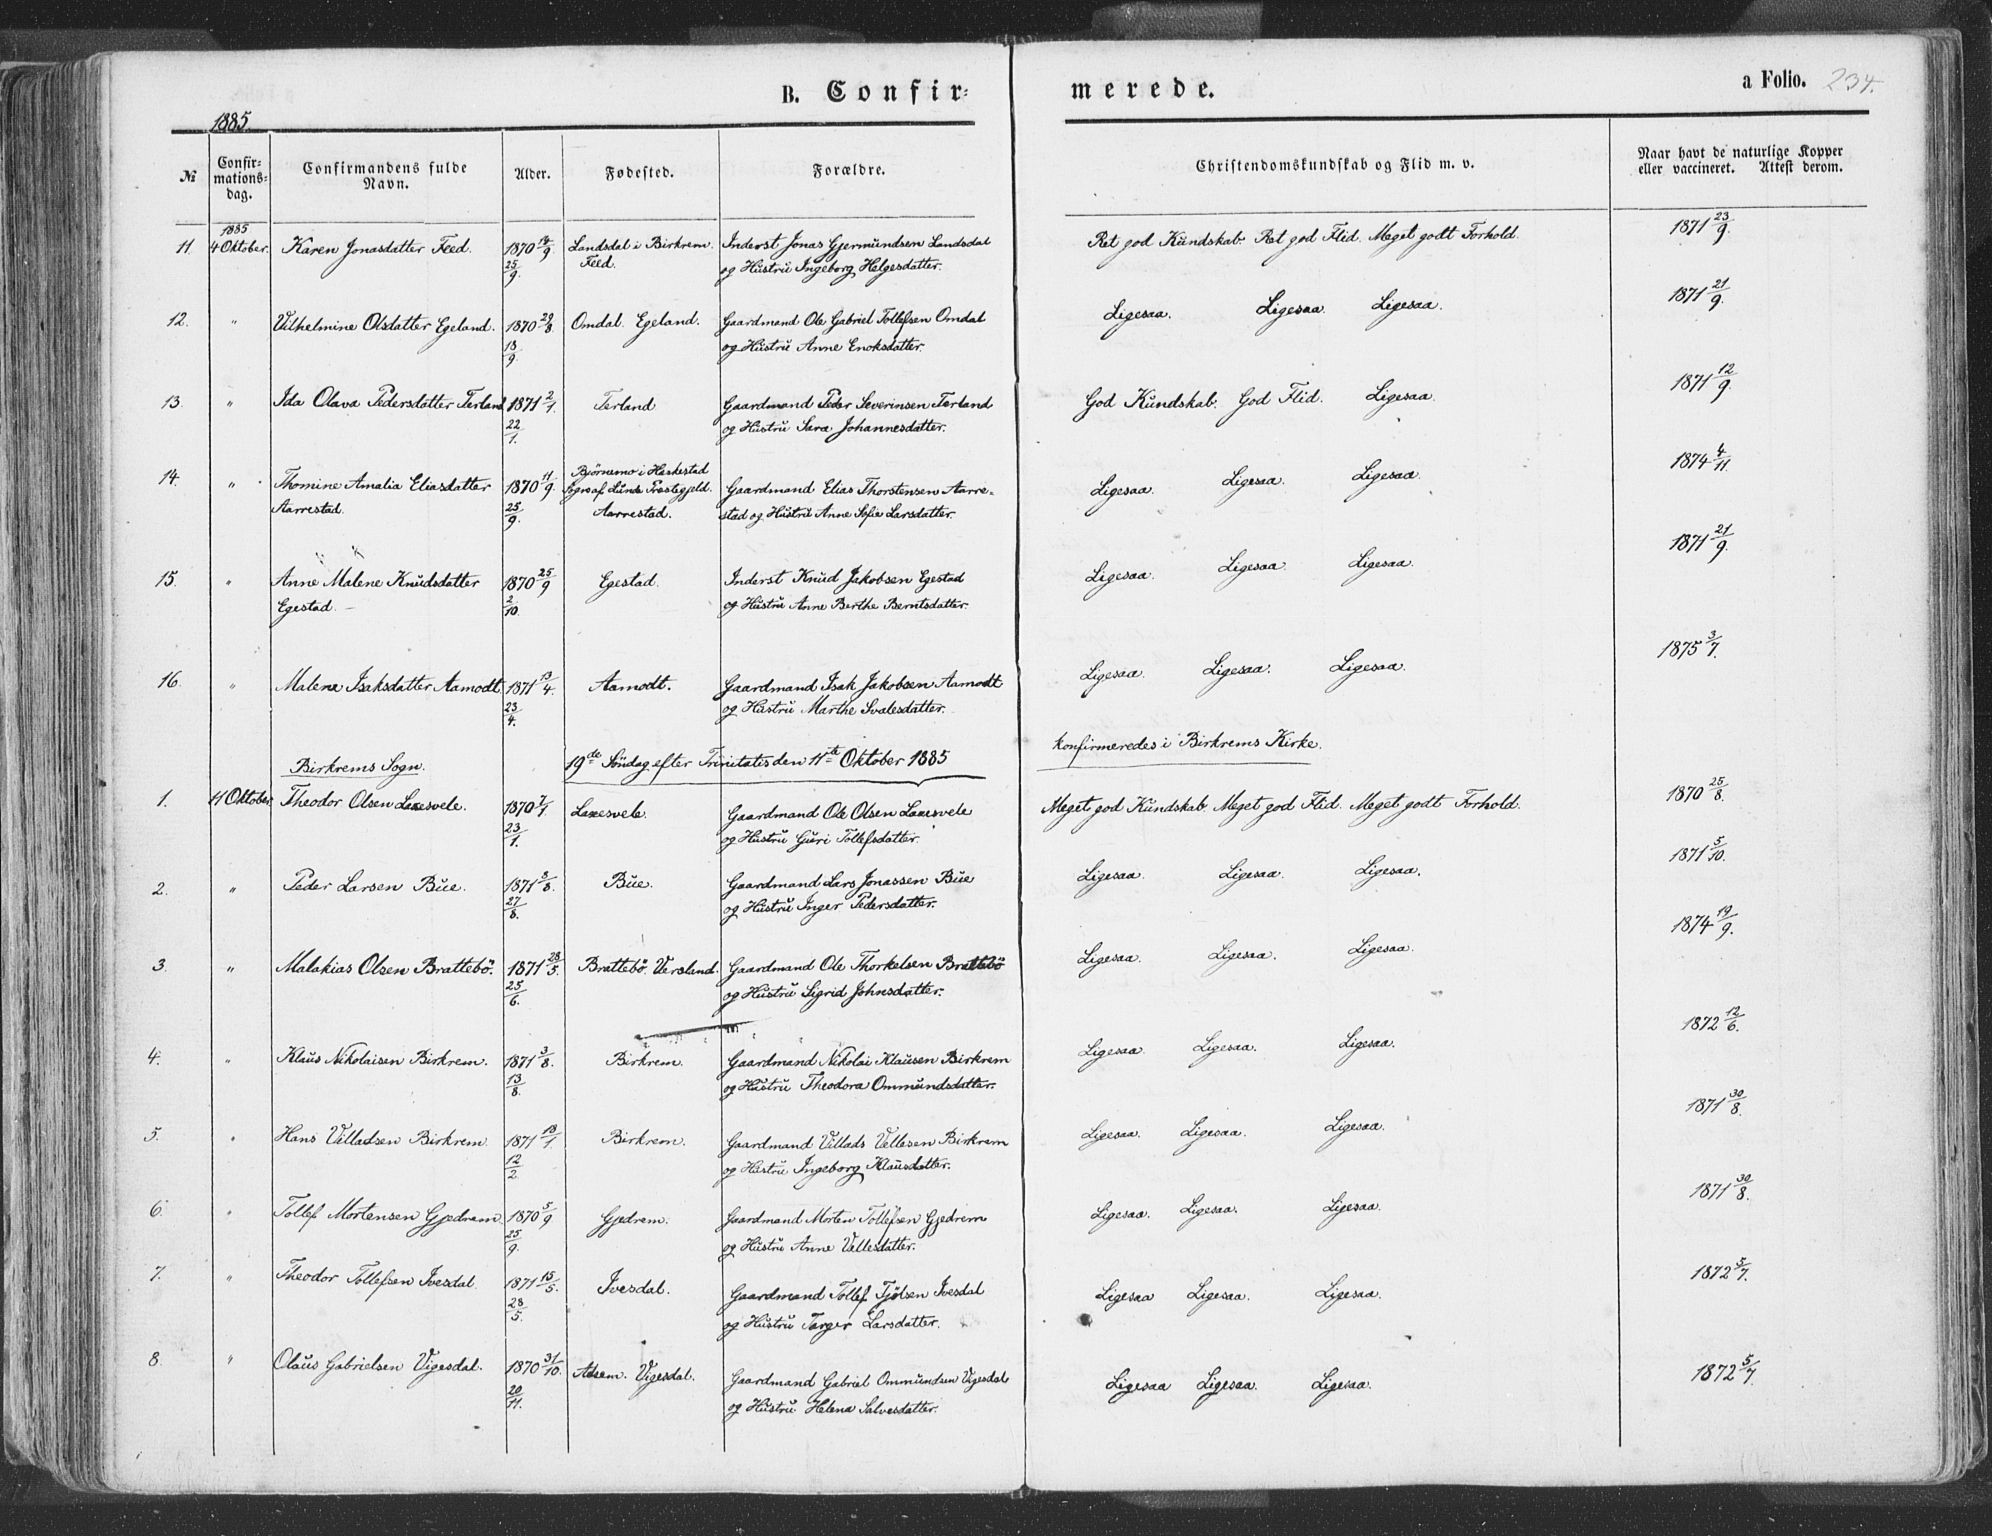 B. Confir= merede. a Folio. 234.
1885.
№ Confir=mations=dag. Confirmandens fulde Navn. Alder. Fødested. Forældre. Christendomskundskab og Flid m. v. Naar havt de naturlige Kopper eller vaccineret. Attest derom.
1885
11. 4 Oktober. Karen Jonasdatter Feed. 1870 18/9. Landsdal i Birkrem. Inderst Jonas Gjermundsen Landsdal Ret god Kundskab. Ret god Flid. Meget godt Forhold. 1871 23/9.
25/9. Feed. og Hustru Ingeborg Helgesdatter.
12. " Vilhelmine Olsdatter Egeland. 1870 29/8. Omdal. Egeland. Gaardmand Ole Gabriel Tollefsen Omdal Ligesaa. Ligesaa. Ligesaa. 1871 21/9.
18/9. og Hustru Anne Enoksdatter.
13. " Ida Olava Pedersdatter Terland 1871 2/1. Terland Gaardmand Peder Severinsen Terland God Kundskab. God Flid. Ligesaa. 1871 12/9.
22/1. og Hustru Sara Johannesdatter.
14. " Thomine Amalia Eliasdatter 1870 11/9. Bjørnemo i Heskestad Ligesaa. Ligesaa. Ligesaa. 1874 4/11.
Sogn af Lunds Prestegjeld. Gaardmand Elias Thorstensen Aarre=
Aarrestad. 25/9. Aarrestad. stad og Hustru Anne Sofie Larsdatter.
15. " Anne Malene Knudsdatter 1870 25/9 Egestad. Inderst Knud Jakobsen Egestad Ligesaa. Ligesaa. Ligesaa. 1871 21/9.
Egestad. 2/10. og Hustru Anne Berthe Berntsdatter.
16. " Malena Isaksdatter Aamodt 1871 13/4. Aamodt. Gaardmand Isak Jakobsen Aamodt Ligesaa. Ligesaa. Ligesaa. 1875 3/7.
23/4. og Hustru Marthe Svalesdatter.
Birkrems Sogn. 19de Söndag efter Trinitatis den 11te Oktober 1885 konfirmeredes i Birkrems Kirke.
1. 11 Oktober. Theodor Olsen Laxesvele. 1870 7/1. Laxesvele. Gaardmand Ole Olsen Laxesvele Meget god Kundskab. Meget god Flid. Meget godt Forhold. 1870 25/8.
23/1. og Hustru Guri Tollefsdatter.
2. " Peder Larsen Bue. 1871 8/8. Bue. Gaardmand Lars Jonassen Bue Ligesaa. Ligesaa. Ligesaa. 1871 5/10.
27/8. og Hustru Inger Pedersdatter.
3. " Malakias Olsen Brattebö. 1871 28/5. Brattebö. Versland. Gaardmand Ole Thorkelsen Brattebö Ligesaa. Ligesaa. Ligesaa. 1874 19/9.
25/6. og Hustru Sigrid Johnsdatter.
4. " Klaus Nikolaisen Birkrem. 1871 3/8. Birkrem. Gaardmand Nikolai Klausen Birkrem Ligesaa. Ligesaa. Ligesaa. 1872 12/6.
13/8. og Hustru Theodora Ommundsdatter.
5. " Hans Villadsen Birkrem. 1871 18/1. Birkrem. Gaardmand Villads Vellesen Birkrem Ligesaa. Ligesaa. Ligesaa. 1871 30/8.
12/2 og Hustru Ingeborg Klausdatter.
6. " Tollef Mortensen Gjedrem 1870 5/9 Gjedrem. Gaardmand Morten Tollefsen Gjedrem Ligesaa. Ligesaa. Ligesaa. 1871 30/8.
25/9. og Hustru Anne Vellesdatter.
7. " Theodor Tollefsen Ivesdal 1871 15/5. Ivesdal. Gaardmand Tollef Tjölsen Ivesdal Ligesaa Ligesaa. Ligesaa. 1872 5/7.
28/5. og Hustru Targer Larsdatter.
8. " Olaus Gabrielsen Vigesdal. 1870 31/10. Vigesdal. Gaardmand Gabriel Ommundsen Vigesdal Ligesaa Ligesaa. Ligesaa. 1872 5/7.
20/11. og Hustru Helena Salvesdatter.